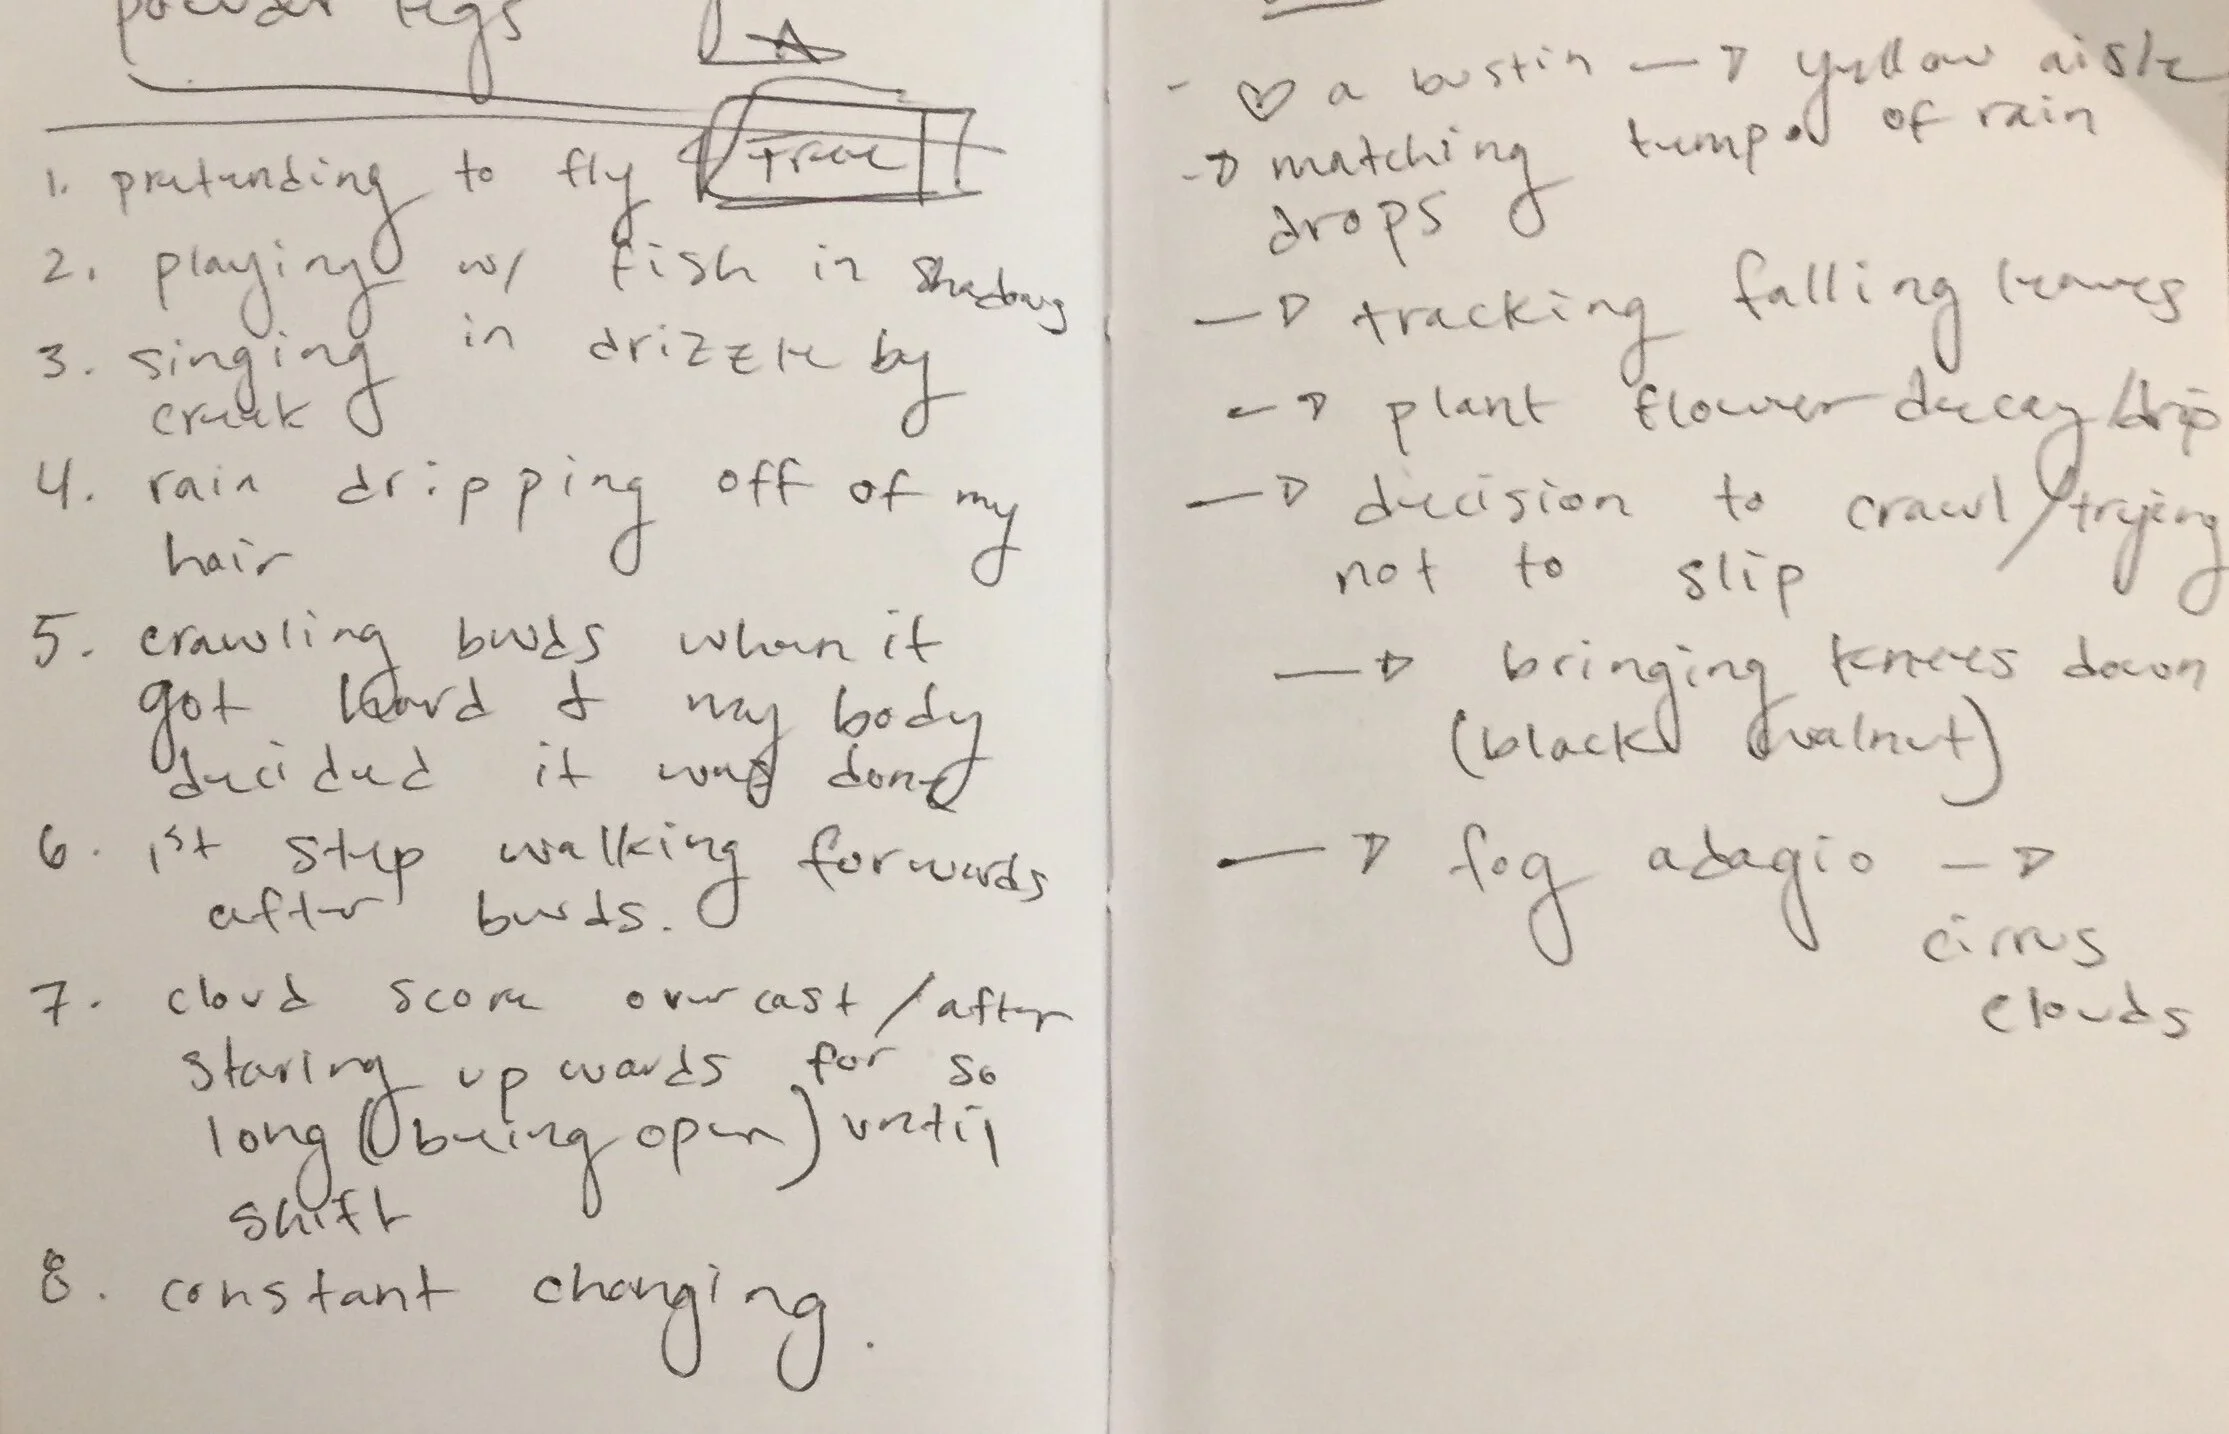 powder legs
1. pretending to fly
Tree
2. playing w/ fish in shadows
3. singing in drizzle by
creek
4. rain dripping off of my
hair
5. crawling bwds when it
got hard & my body
decided it was done
6. 1st step walking forwards
after bwds.
7. cloud score overcast / after
staring upwards for so
long (being open) until
shift
8. constant changing.
- ♡ a bustin → yellow aisle
→ matching tempo of rain
drops
→ tracking falling leaves
→ plant flower decay / drip
→ decision to crawl / trying
not to slip
→ bringing knees down
(black walnut)
→ fog adagio →
cirrus
clouds